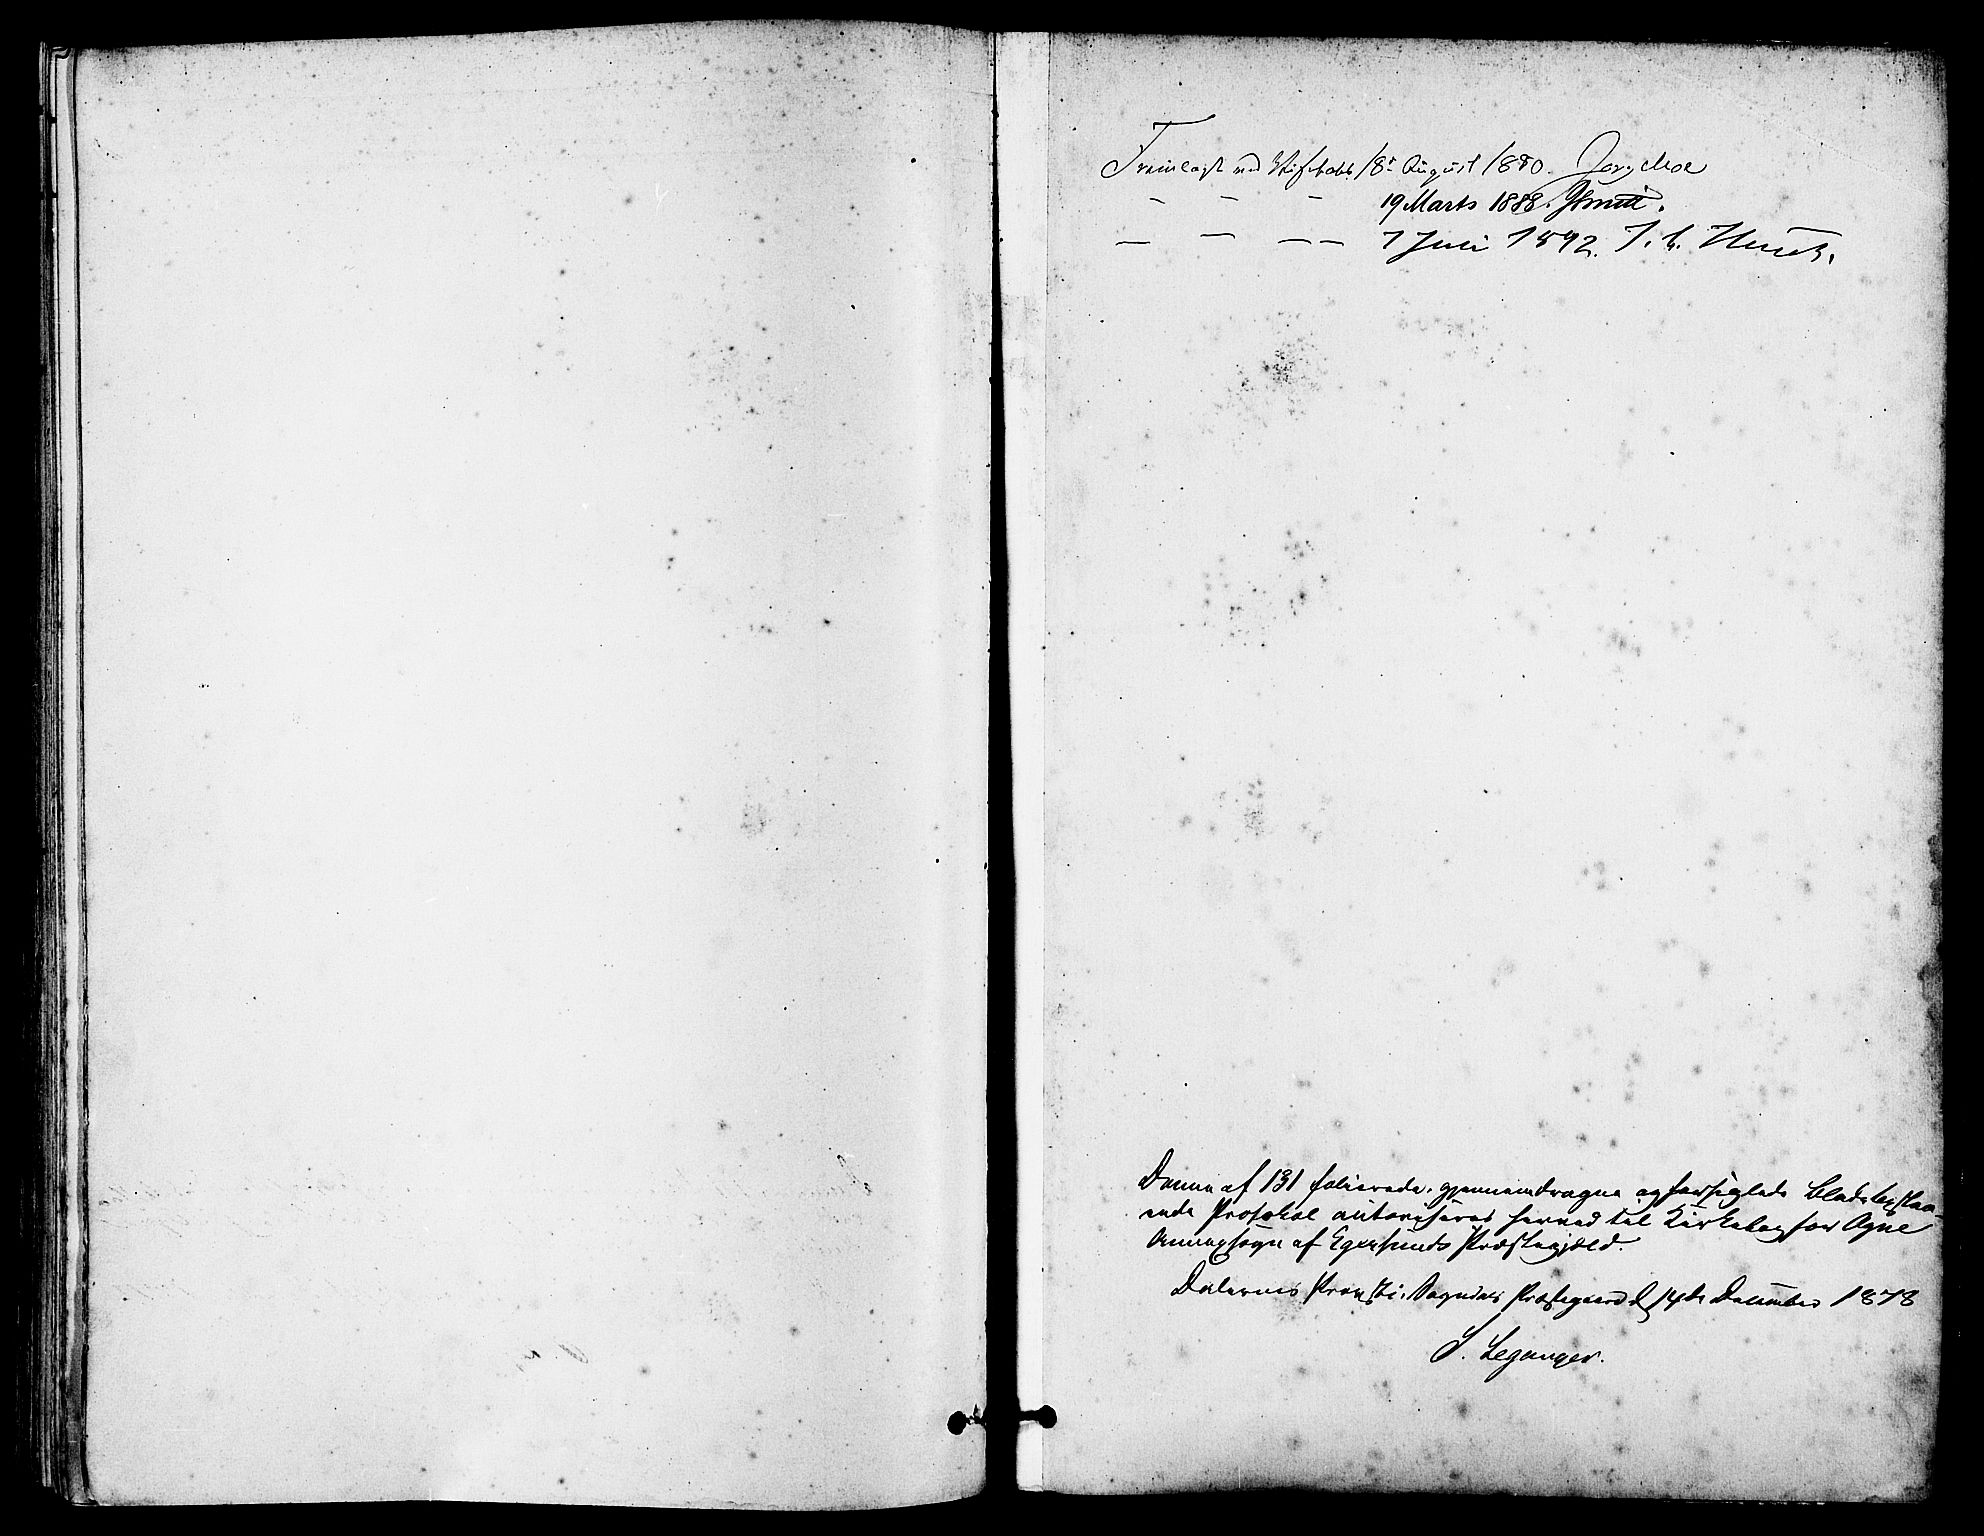 Fremlagt ved Visitats 18de August 1880. Jørg Moe
– – – 19 Marts 1888. Smitt.
– – – – 7 Juni 1892. J. C. Heuch.
Denne af 131 folierede, gjennemdragne og forseglede Blade bestaa-
ende Protokol autoriseres herved til Kirkebog for Ogne
Annexsogn af Egersunds Præstegjæld.
Dalernes Provsti, Sogndals Præstegaard d. 14de December 1878
S. Leganger.